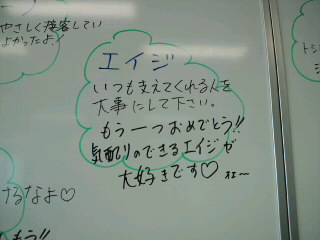 やさしく接客してい
よかったよ!
エイジ
いつも支えてくれる人を
大事にして下さい。
もう一つおめでとう!!
気配りのできるエイジが
大好きです♡
けるなよ♡
もう!!
トシ